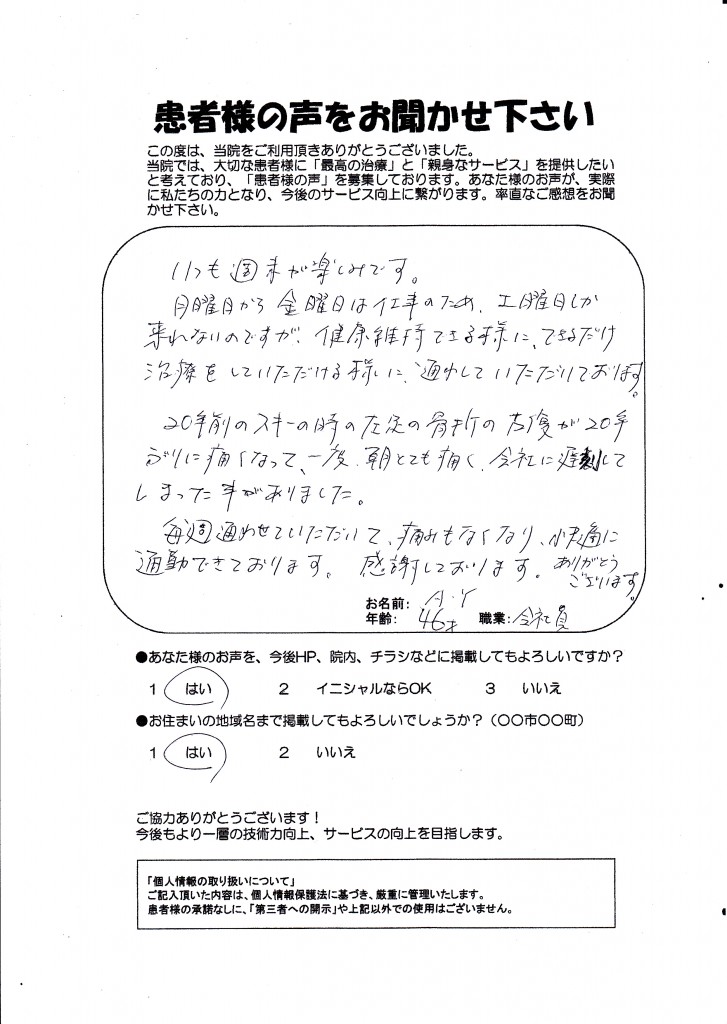 患者様の声をお聞かせ下さい
この度は、当院をご利用頂きありがとうございました。
当院では、大切な患者様に「最高の治療」と「親身なサービス」を提供したい
と考えており、「患者様の声」を募集しております。あなた様のお声が、実際
に私たちの力となり、今後のサービス向上に繋がります。率直なご感想をお聞
かせ下さい。
いつも週末が楽しみです。
月曜日から金曜日は仕事のため、土曜日しか
来れないのですが、健康維持できる様に、できるだけ
治療をしていただける様に、通わしていただいております。
20年前のスキーの時の左足の骨折の古傷が20年
ぶりに痛くなって、一度、朝とても痛く、会社に遅刻して
しまった事がありました。
毎週通わせていただいて、痛みもなくなり、快適に
通勤できております。 感謝しております。ありがとう
ございます。
お名前: A・Y
年齢: 46才 職業: 会社員
●あなた様のお声を、今後HP、院内、チラシなどに掲載してもよろしいですか?
1 はい 2 イニシャルならOK 3 いいえ
●お住まいの地域名まで掲載してもよろしいでしょうか?(〇〇市〇〇町)
1 はい 2 いいえ
ご協力ありがとうございます!
今後もより一層の技術力向上、サービスの向上を目指します。
「個人情報の取り扱いについて」
ご記入頂いた内容は、個人情報保護法に基づき、厳重に管理いたします。
患者様の承諾なしに、「第三者への開示」や上記以外での使用はございません。